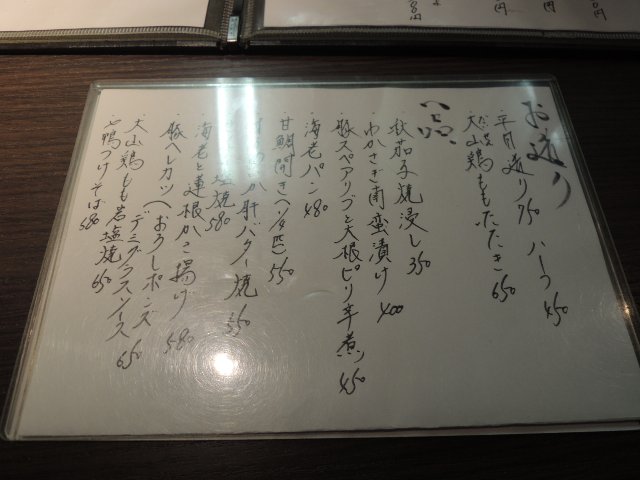 お造り
平目造り 750 ハーフ 450
大山鶏ももたたき 650
一品
秋茄子焼浸し 350
わかさぎ南蛮漬け 400
豚スペアリブと大根ピリ辛煮 450
海老パン 480
甘鯛開き(1/4匹) 550
か肝バター焼 550
塩焼 580
海老と蓮根かき揚げ 580
豚ヘレカツ(おろしポンズ
デミグラスソース 650
大山鶏もも岩塩焼 650
鴨つけそば 580